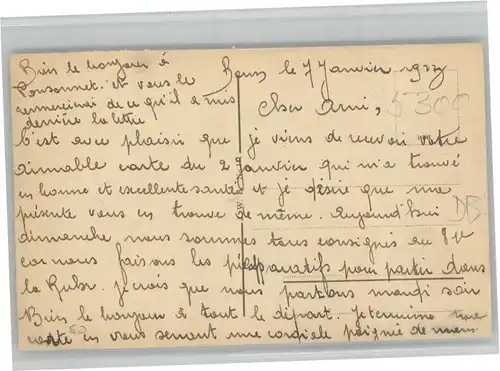 Bien le bonjour à
Consonnet. et vous le
remercirai de ce qu'il a mis
derrière la lettre
Bonn le 7 Janvier 1923
Cher Ami,
5300
C'est avec plaisir que je viens de recevoir votre
aimable carte du 2 Janvier qui m'a trouvé
en bonne et excellente santé et je désire que ma
présente vous en trouve de même. Aujourd'hui
DB
dimanche nous sommes tous consignés au
car nous faisons les préparatifs pour partir dans
la Ruhr. je crois que nous partons mardi soir
Bien le bonjour à tout le départ. Je termine ma
carte en vous serrant une cordiale poignée de mains